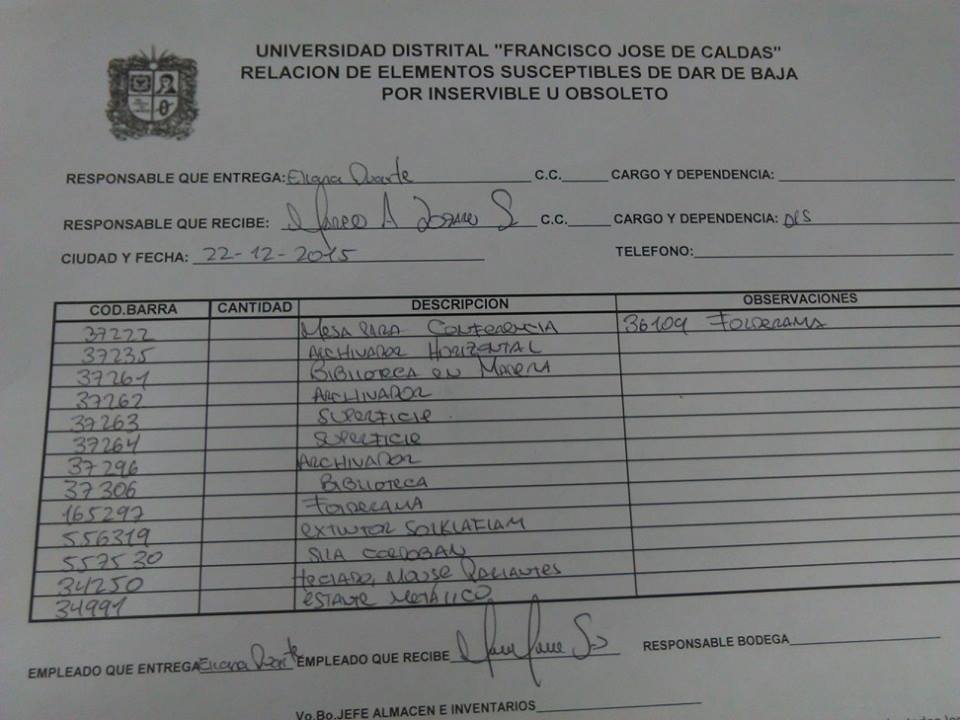 UNIVERSIDAD DISTRITAL "FRANCISCO JOSE DE CALDAS"
RELACION DE ELEMENTOS SUSCEPTIBLES DE DAR DE BAJA
POR INSERVIBLE U OBSOLETO
RESPONSABLE QUE ENTREGA: Eliana Duarte C.C. CARGO Y DEPENDENCIA:
RESPONSABLE QUE RECIBE: Marco A C.C. CARGO Y DEPENDENCIA:
CIUDAD Y FECHA: 22-12-2015 TELEFONO:
COD.BARRA CANTIDAD DESCRIPCION OBSERVACIONES
37222 MESA PARA CONFERENCIA 36109 FOLDERAMA
37235 ARCHIVADOR HORIZENTAL
37261 BIBLIOTECA EN
37262 ARCHIVADOR
37263 SUPERFICIE
37264 SUPERFICIE
37296 ARCHIVADOR
37306 BIBLIOTECA
165297 FOLDERAMA
556319 EXTINTOR SOLKLAFLAM
557530 SILLA
34250 TECLADO, MOUSE PARLANTES
34991 ESTANTE METÁLICO
EMPLEADO QUE ENTREGA Eliana Duarte EMPLEADO QUE RECIBE RESPONSABLE BODEGA
Vo.Bo.JEFE ALMACEN E INVENTARIOS